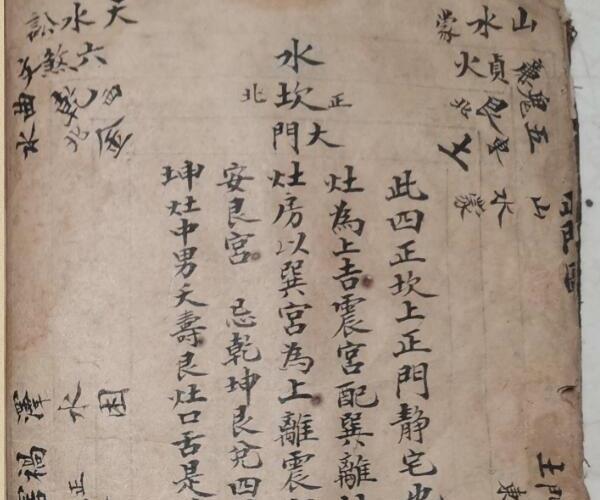 山水蒙
五鬼廉
貞火
東北
山
水
蒙
水
正北
坎
大門
此四正坎上正門靜宅也
灶為上吉震宮配巽離
灶房以巽宮為上離震
安艮宮 忌乾坤艮兌四
坤灶中男夭壽艮灶口舌是
天水訟
六煞
曲水
北
困
水
澤
正
禍